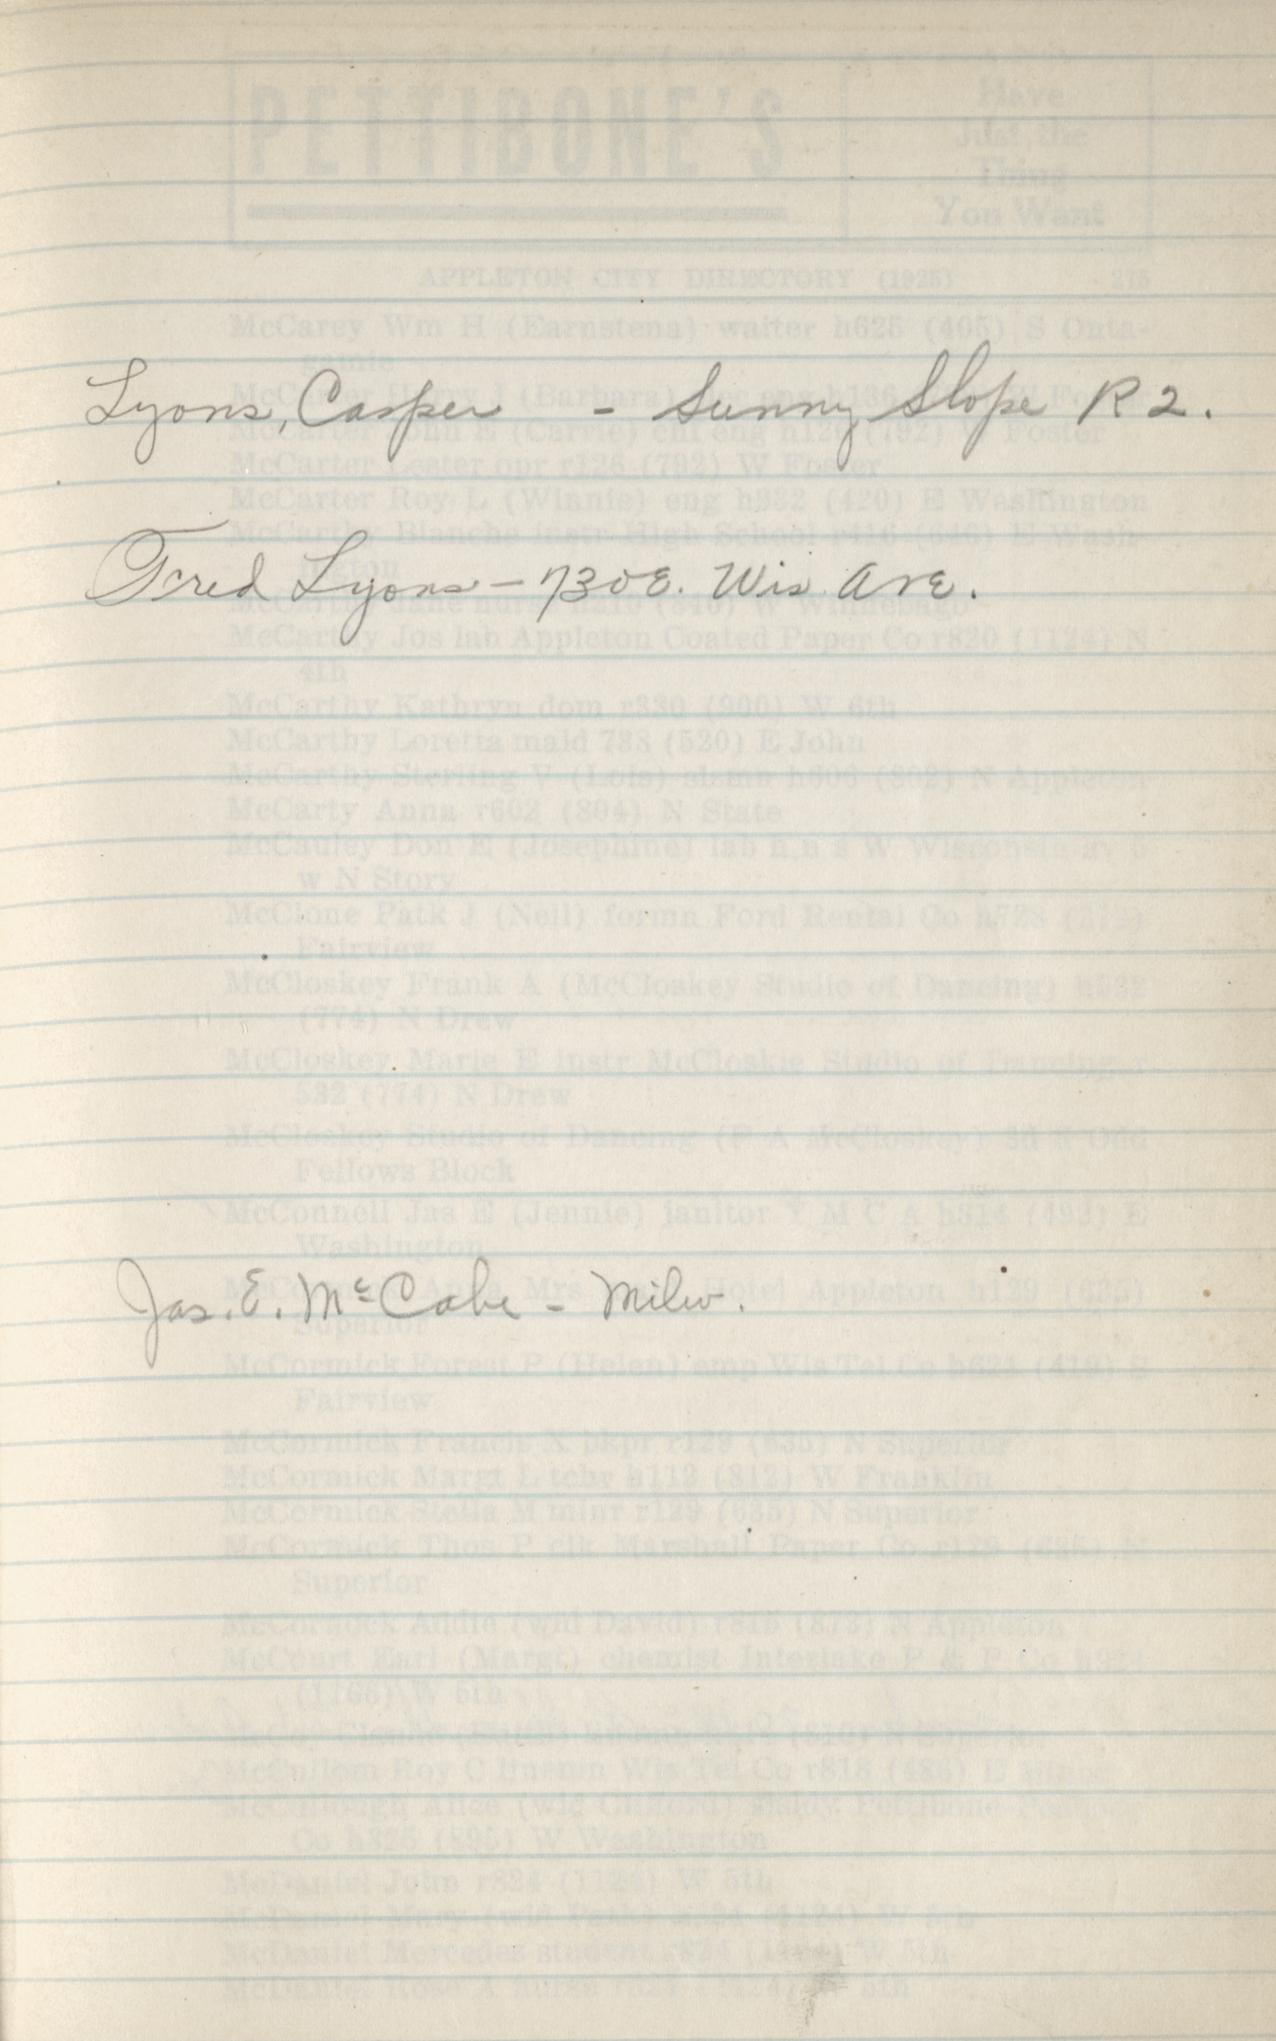 PETTIBONE'S
Have
Just the
Thing
You Want
APPLETON CITY DIRECTORY (1925) 275
McCarey Wm H (Earnstena) waiter h625 (405) S Outa-
gamie
Lyons, Casper - Sunny Slope R 2.
McCarter John E (Carrie) chf eng h126 (792) W Foster
McCarter Lester opr r126 (792) W Foster
McCarter Roy L (Winnie) eng h932 (420) E Washington
McCarthy Blanche instr High School r416 (646) E Wash-
ington
Fred Lyons - 730 E. Wis Ave.
McCarthy Jane nurse h210 (840) W Winnebago
McCarthy Jos lab Appleton Coated Paper Co r820 (1124) N
4th
McCarthy Kathryn dom r330 (900) W 6th
McCarthy Loretta maid 733 (520) E John
McCarthy Sterling V (Lois) slsmn h606 (802) N Appleton
McCarty Anna r602 (804) N State
McCauley Don E (Josephine) lab h n s W Wisconsin av 5
w N Story
McClone Patk J (Nell) formn Ford Rental Co h728 (272)
Fairview
McCloskey Frank A (McCloskey Studio of Dancing) h532
(774) N Drew
McCloskey Marie E instr McCloskie Studio of Dancing r
532 (774) N Drew
McCloskey Studio of Dancing (F A McCloskey) 3d fl Odd
Fellows Block
McConnell Jas E (Jennie) janitor Y M C A h814 (492) E
Washington
Anna Mrs Hotel Appleton h129 (635)
Superior
Jas. E. McCabe - Milw.
McCormick Forest P (Helen) emp Wis Tel Co h621 (419) S
Fairview
McCormick Francis X bkpr r129 (635) N Superior
McCormick Margt L tchr h112 (812) W Franklin
McCormick Stella M minr r129 (635) N Superior
McCormick Thos P clk Marshall Paper Co r129 (635) N
Superior
McCormick Addie (wid David) r815 (873) N Appleton
McCourt Earl (Margt) chemist Interlake P & P Co h924
(1168) W 5th
McCullom Roy C linemn Wis Tel Co r818 (486) E
McCullough Alice (wid Clifford) slsldy Pettibone-Peabody
Co h326 (895) W Washington
McDaniel John r824 (1124) W 5th
McDaniel Mary (wid Patk) h824 (1124) W 5th
McDaniel Mercedes student r824 (1124) W 5th
McDaniel Rose A nurse r824 (1124) W 5th